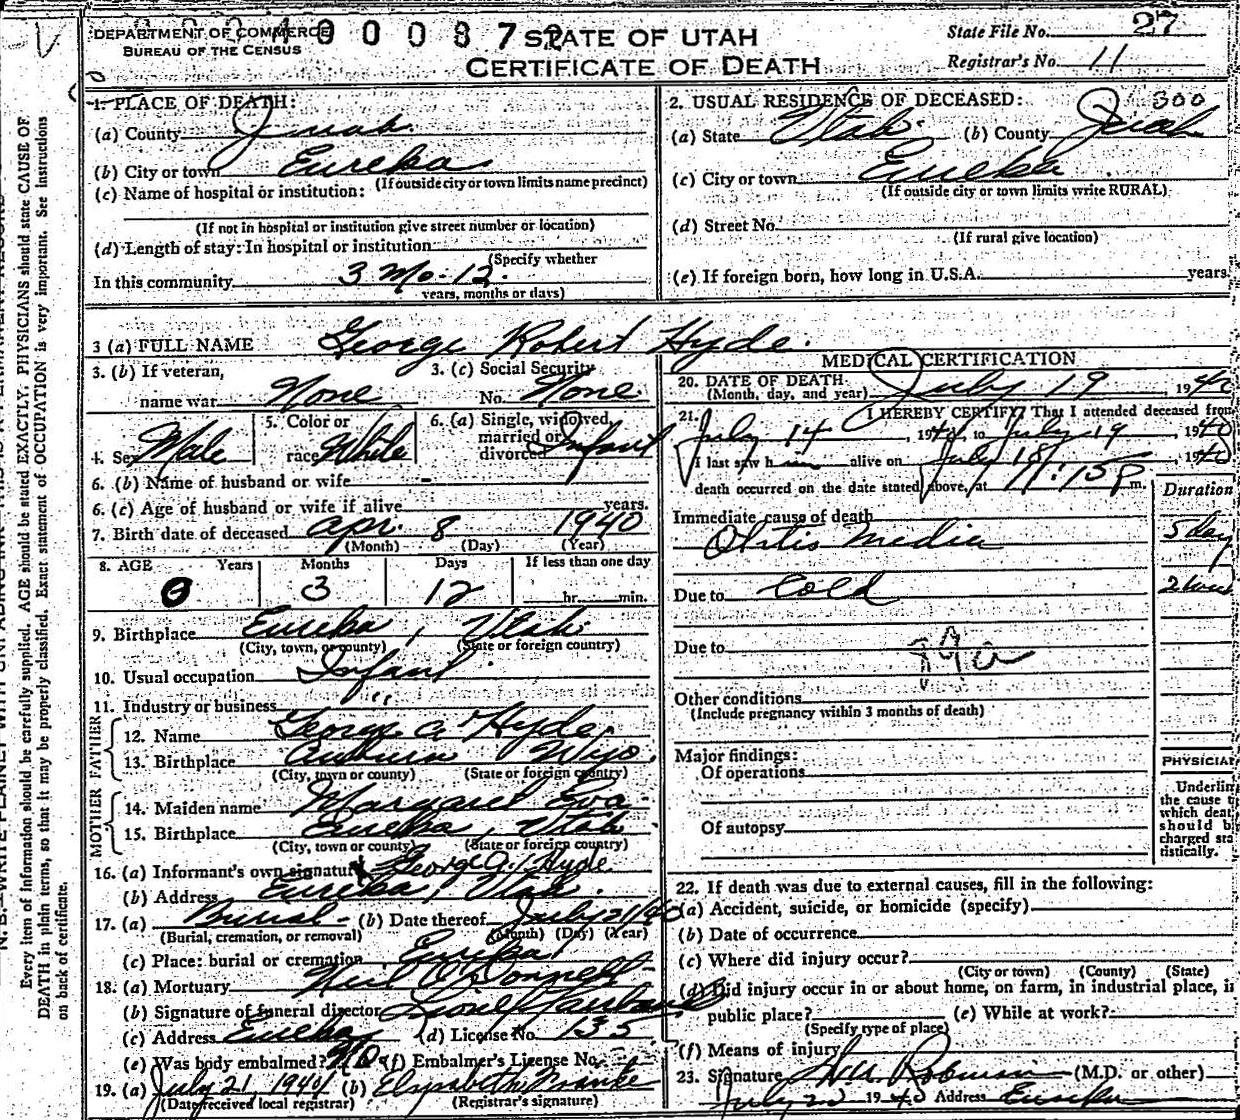 DEPARTMENT OF COMMERCE
BUREAU OF THE CENSUS
STATE OF UTAH
CERTIFICATE OF DEATH
State File No. 27
Registrar's No. 11
1. PLACE OF DEATH:
(a) County Juab
(b) City or town Eureka
(If outside city or town limits name precinct)
(c) Name of hospital or institution:
(If not in hospital or institution give street number or location)
(d) Length of stay: In hospital or institution
(Specify whether
In this community 3 Mo - 12.
years, months or days)
2. USUAL RESIDENCE OF DECEASED: 300
(a) State Utah (b) County Juab
(c) City or town Eureka
(If outside city or town limits write RURAL)
(d) Street No.
(If rural give location)
(e) If foreign born, how long in U.S.A. years.
3 (a) FULL NAME George Robert Hyde.
3. (b) If veteran, name war None
3. (c) Social Security No. None
4. Sex Male
5. Color or race White
6. (a) Single, widowed, married or divorced Infant
6. (b) Name of husband or wife -
6. (c) Age of husband or wife if alive years.
7. Birth date of deceased Apr. 8 1940
(Month) (Day) (Year)
8. AGE Years Months Days If less than one day
0 3 12 hr. min.
9. Birthplace Eureka, Utah
(City, town, or county) (State or foreign country)
10. Usual occupation Infant
11. Industry or business "
FATHER
12. Name George A. Hyde.
13. Birthplace Auburn Wyo.
(City, town or county) (State or foreign country)
MOTHER
14. Maiden name Margaret Eva
15. Birthplace Eureka, Utah
(City, town or county) (State or foreign country)
16. (a) Informant's own signature George A. Hyde
(b) Address Eureka, Utah.
17. (a) Burial - (b) Date thereof July 21/40
(Burial, cremation, or removal) (Month) (Day) (Year)
(c) Place: burial or cremation Eureka
18. (a) Mortuary
(b) Signature of funeral director Lionel
(c) Address Eureka (d) License No. 135
(e) Was body embalmed? No (f) Embalmer's License No.
19. (a) July 21, 1940 (b)
(Date received local registrar) (Registrar's signature)
MEDICAL CERTIFICATION
20. DATE OF DEATH July 19 1940
(Month, day, and year)
21. I HEREBY CERTIFY, That I attended deceased from
July 14, 1940, to July 19 1940
I last saw h im alive on July 18, 1940
death occurred on the date stated above, at 11:15 P m.
Duration
Immediate cause of death
Otitis Media 5 day
Due to Cold
Due to
Other conditions
(Include pregnancy within 3 months of death)
Major findings:
Of operations
Of autopsy
PHYSICIAN
Underline
the cause to
which death
should be
charged sta
tistically.
22. If death was due to external causes, fill in the following:
(a) Accident, suicide, or homicide (specify)
(b) Date of occurrence
(c) Where did injury occur?
(City or town) (County) (State)
(d) Did injury occur in or about home, on farm, in industrial place, in
public place? (e) While at work?
(Specify type of place)
(f) Means of injury
23. Signature Wm Robinson (M.D. or other)
July 1940 Address Eureka
Every item of information should be carefully supplied. AGE should be stated EXACTLY. PHYSICIANS should state CAUSE OF
DEATH in plain terms, so that it may be properly classified. Exact statement of OCCUPATION is very important. See Instructions
on back of certificate.